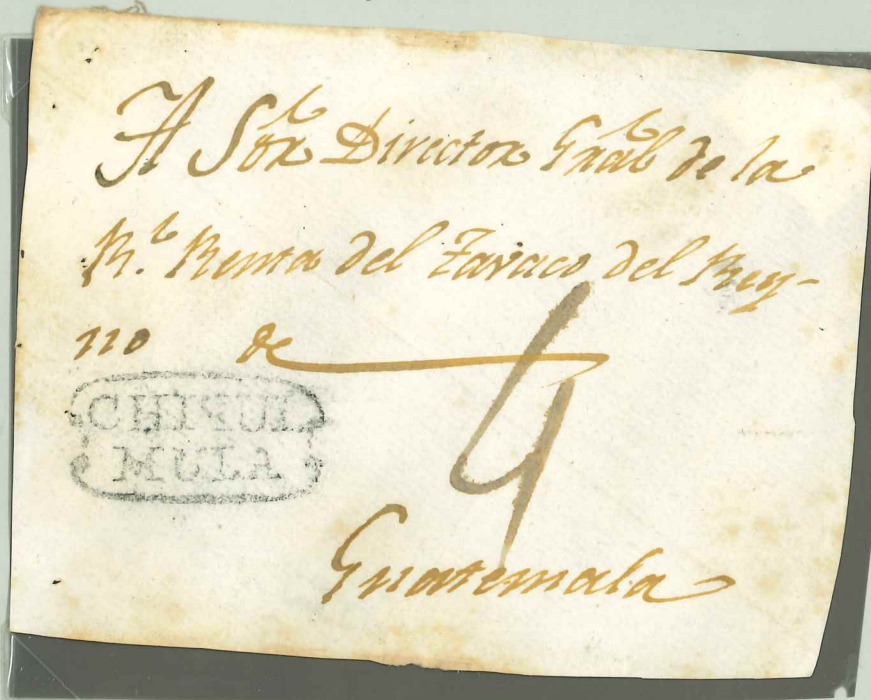 A Sõr Director Grãl de la
R.l Renta del Tavaco del Rey-
no de
CHIQUI
MULA
4
Guatemala